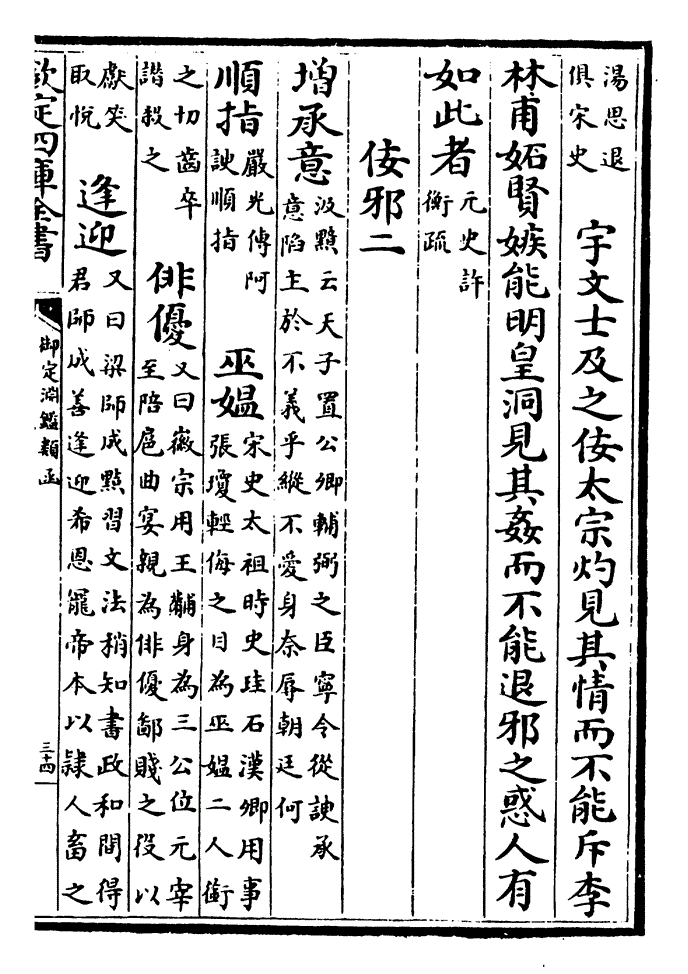 湯思退俱宋史　宇文士及之佞太宗灼見其情而不能斥李
林甫妬賢嫉能明皇洞見其姦而不能退邪之惑人有
如此者元史許衡疏
佞邪二
增承意汲黯云天子置公卿輔弼之臣寧令從諛承意陷主於不義乎縱不愛身奈辱朝廷何
順指嚴光傳阿諛順指　巫媪宋史太祖時史珪石漢卿用事張瓊輕侮之目為巫媪二人銜
之切齒卒譖殺之　俳優又曰徽宗用王黼身為三公位元宰至陪扈曲宴親為俳優鄙賤之役以
獻笑取悅　逢迎又曰梁師成黠習文法稍知書政和間得君師成善逢迎希恩寵帝本以隸人畜之
欽定四庫全書
御定淵鑑類函
三十四